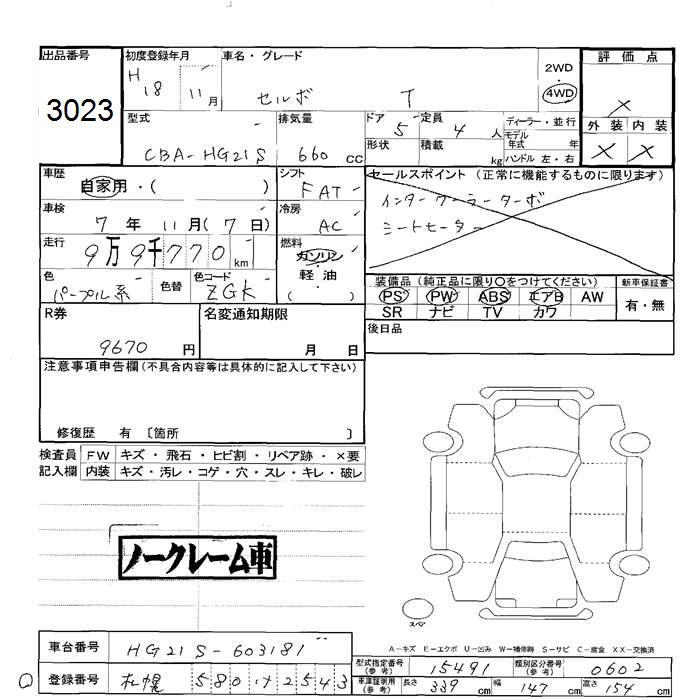 出品番号
3023
初度登録年月
H18 11月
車名・グレード
セルボ T
2WD
4WD
評価点
×
外装 内装
× ×
型式
CBA-HG21S
排気量
660 CC
ドア
5
定員
4 人
形状
積載
kg
ディーラー・並行
モデル年式 年
ハンドル 左・右
車歴
自家用・( )
シフト
FAT
車検
7年 11月(7日)
冷房
AC
走行
9万9千770km
燃料
ガソリン
軽油
( )
色
パープル系
色替
色コード
ZGK
セールスポイント (正常に機能するものに限ります)
インタークーラーターボ
シートヒーター
装備品 (純正品に限り○をつけてください)
PS PW ABS エアB AW
SR ナビ TV カワ
新車保証書
有・無
後日品
R券
9670 円
名変通知期限
月 日
注意事項申告欄 (不具合内容等は具体的に記入して下さい)
修復歴 有 〔箇所 〕
検査員記入欄
FW キズ・飛石・ヒビ割・リペア跡・×要
内装 キズ・汚レ・コゲ・穴・スレ・キレ・破レ
ノークレーム車
スペア
A-キズ E-エクボ U-凹み W-補修跡 S-サビ C-腐食 XX-交換済
車台番号
HG21S-603181
型式指定番号(参考)
15491
類別区分番号(参考)
0602
登録番号
札幌 580 け 2543
車庫証明用(参考)
長さ 339 cm 幅 147 cm 高さ 154 cm